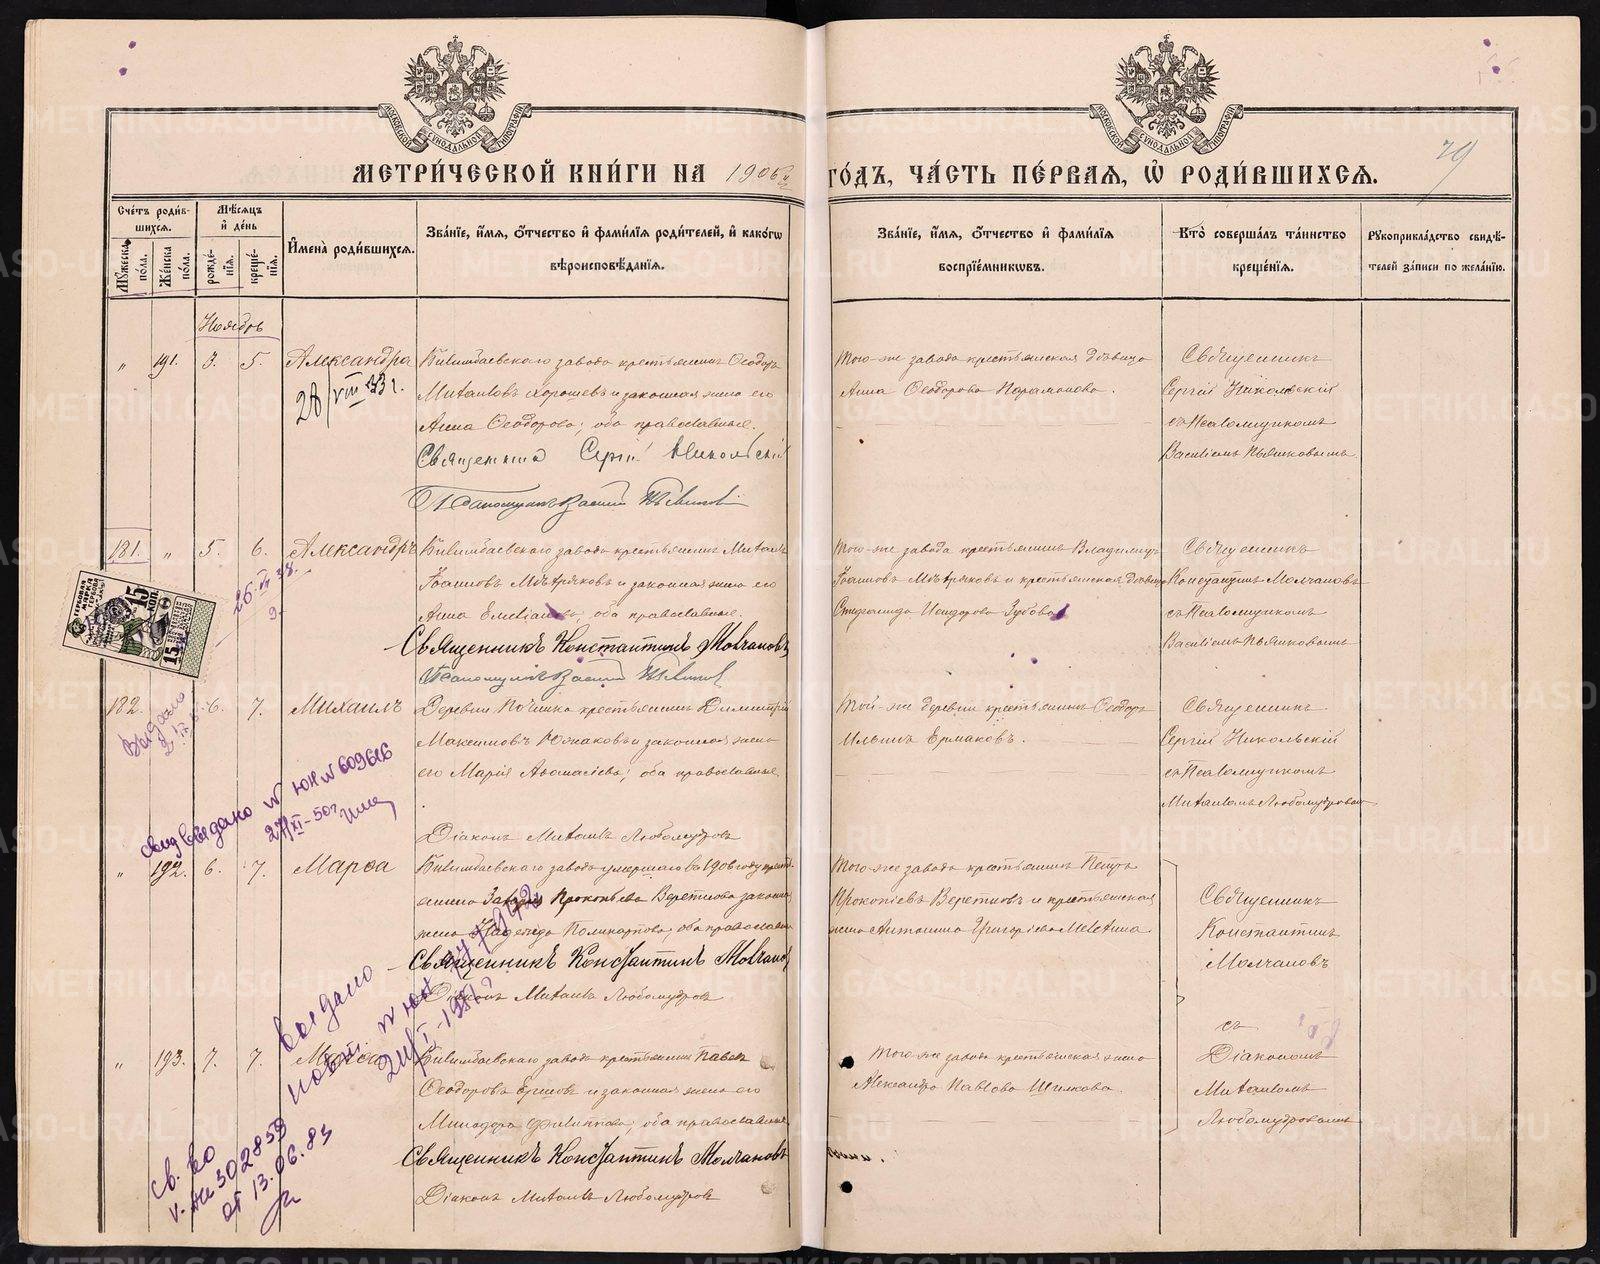 МЕТРИ́ЧЕСКОЙ КНИ́ГИ НА 1906й ГО́ДЪ, ЧА́СТЬ ПЕ́РВАЯ, Ѽ РОДИ́ВШИХСЯ.
79
Сче́тъ роди́в-
шихся.
Мѣ́сяцъ
и҆ де́нь
Мꙋ́жеска по́ла.
Же́нска по́ла.
рожде́-
нїя.
креще́-
нїя.
И҆мена̀ роди́вшихся.
Зва́нїе, и҆́мя, ѻ҆́тчество и҆ фами́лїя роди́телей, и҆ како́гѡ
вѣроисповѣ́данїя.
Зва́нїе, и҆́мя, ѻ҆́тчество и҆ фами́лїя
воспрїе́мникѡвъ.
Кто̀ соверша́лъ та́инство
креще́нїя.
Рꙋкоприкла́дство свидѣ́-
телей за́писи по жела́нїю.
Ноябрь
„ 191. 3. 5. Александра
28/VIII 33 г.
Билимбаевскаго завода крестьянинъ Ѳеодоръ
Михаиловъ Хорошевъ и законная жена его
Анна Ѳеодорова; оба православные.
Священникъ Сергій Никольскій
Псаломщикъ Василій
Того-же завода крестьянская дѣвица
Анна Ѳеодорова Парамонова.
Священникъ
Сергій Никольскій
съ Псаломщикомъ
Василіемъ
181. „ 5. 6. Александръ
Билимбаевскаго завода крестьянинъ Михаилъ
Іоанновъ и законная жена его
Анна Емеліанова, оба православные.
Священникъ Константинъ Молчановъ
Псаломщикъ Василій
Того-же завода крестьянинъ Владимиръ
Іоанновъ и крестьянская дѣвица
Исидорова Зубова
Священникъ
Константинъ Молчановъ
съ Псаломщикомъ
Василіемъ
15 КОП.
182. 6. 7. Михаилъ
Деревни Починка крестьянинъ Димитрій
Максимовъ и законная жена
его Марія Аѳанасіева; оба православные.
Діаконъ Михаилъ Любомудровъ
Той-же деревни крестьянинъ Ѳеодоръ
Ильинъ Ермаковъ.
Священникъ
Сергій Никольскій
съ Псаломщикомъ
Михаиломъ Любомудровымъ
Выдано
выдано № ЮН № 609626
27/XI-50г
„ 192. 6. 7. Марѳа
Билимбаевскаго завода умершаго въ 1906 году
Прокопьева Веретнова законная
жена Надежда Поликарпова; оба православные
Священникъ Константинъ Молчановъ
Діаконъ Михаилъ Любомудровъ
Того-же завода крестьянинъ Петръ
Прокопіевъ Веретновъ и крестьянская
жена Антонина Григоріева
Священникъ
Константинъ
Молчановъ
съ
Діакономъ
Михаиломъ
Любомудровымъ
Выдано
„ 193. 7. 7.
Билимбаевскаго завода крестьянинъ Павелъ
Ѳеодоровъ Ершовъ и законная жена его
Минодора Филиппова; оба православные
Священникъ Константинъ Молчановъ
Діаконъ Михаилъ Любомудровъ
Того-же завода крестьянская жена
Александра Павлова Шилкова.
Св. во
V-АИ 302858
от 13.06.83
METRIKI.GASO-URAL.RU